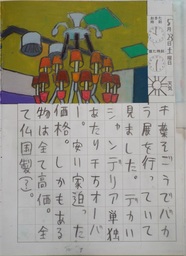 5月28日土曜日
木葉そごうでバカ
ラ展を行っていて
見ました。デカい
シャンデリア単独
あたり千万オーバ
ー。安い家迫った
価格。しかもある
物は全て高価。全
て仏国製(?)。